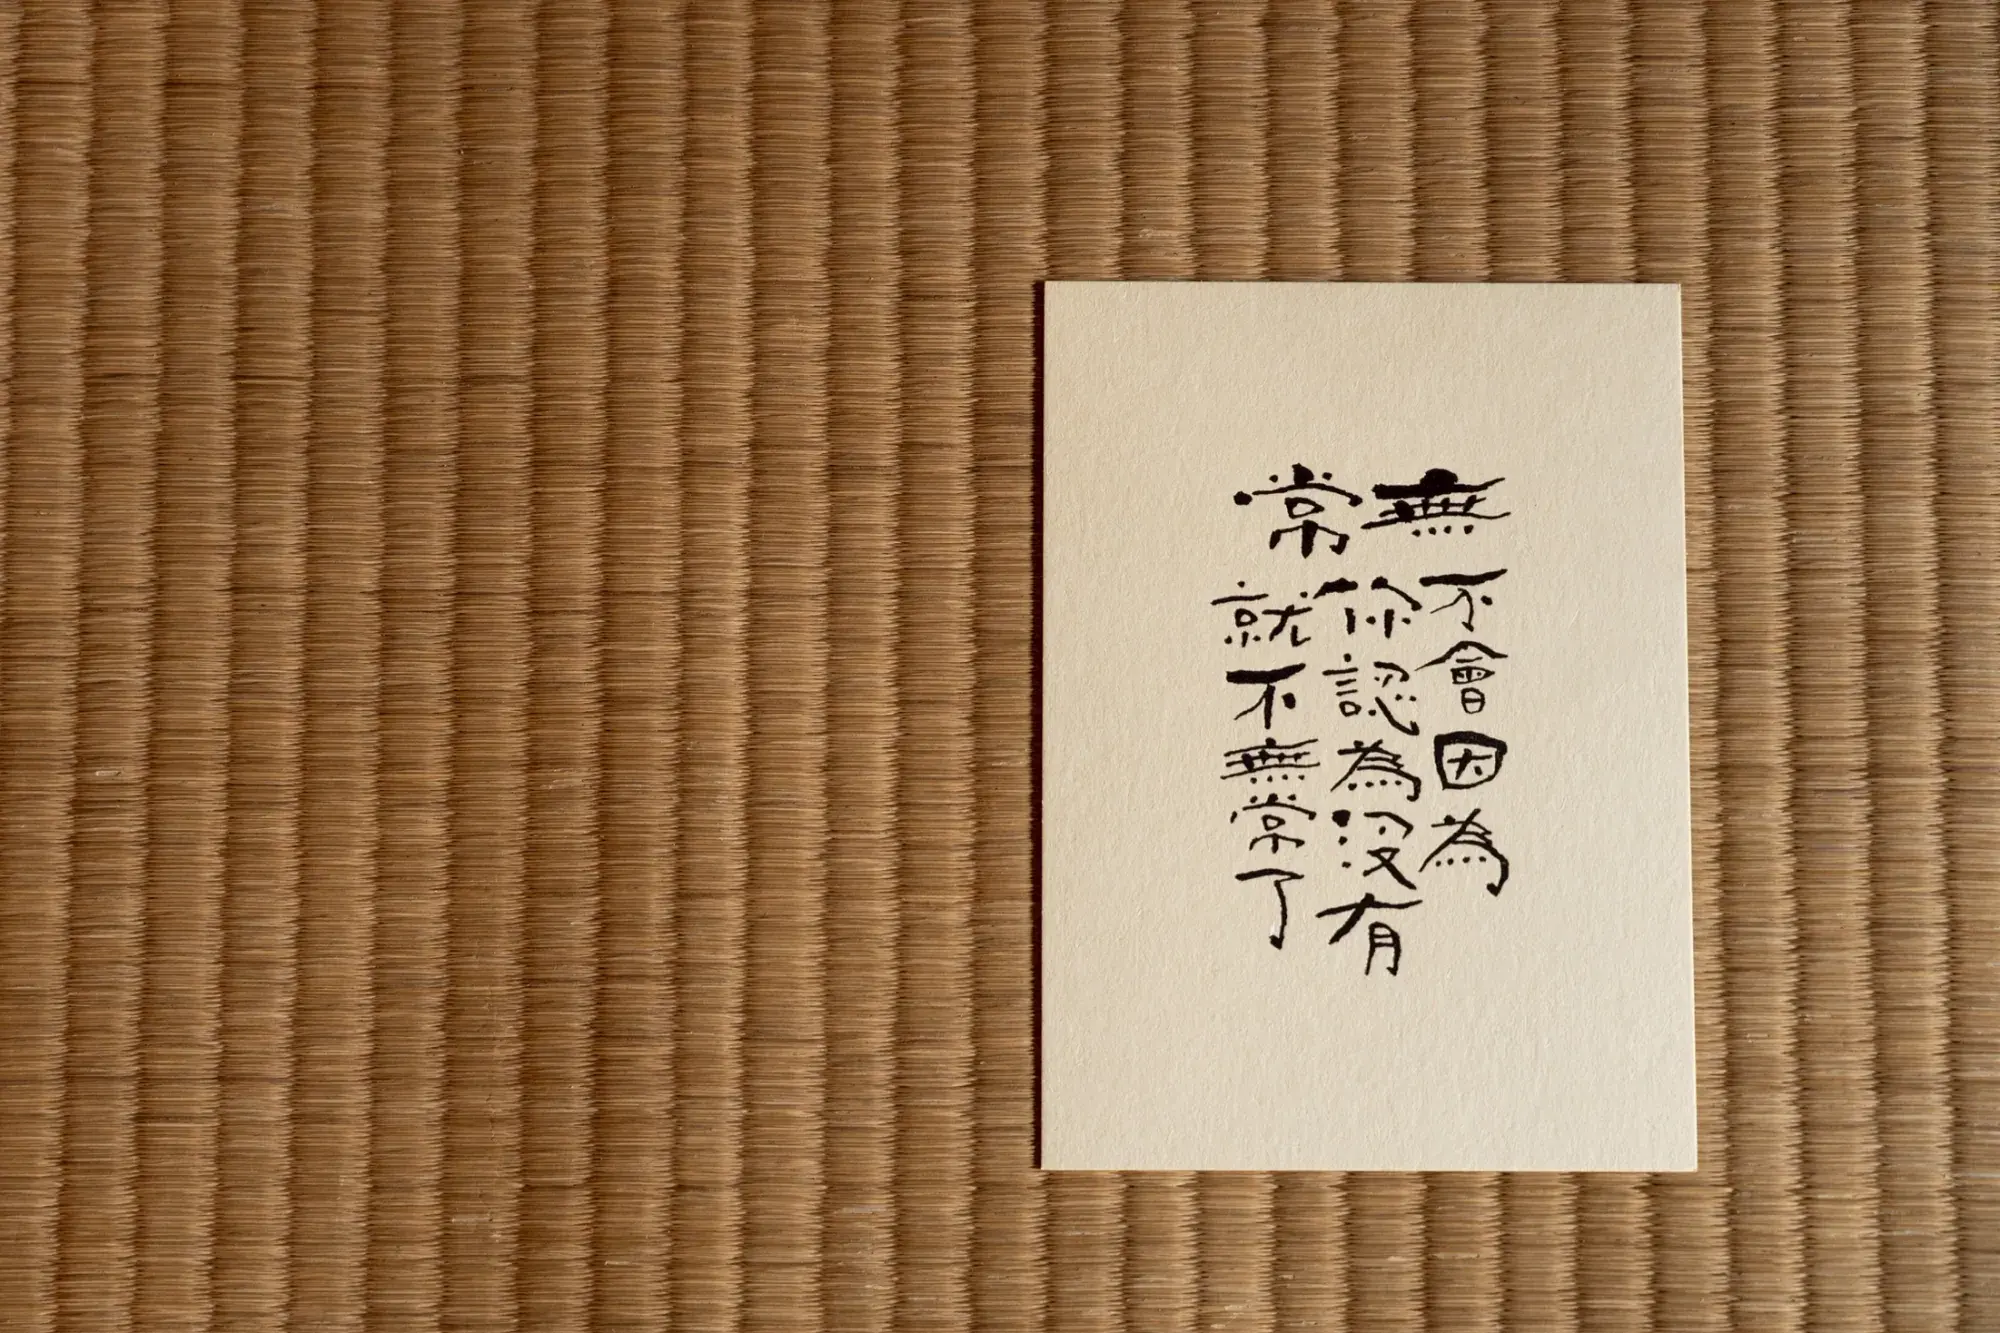 無常
不會因為
你認為沒有
就不無常了